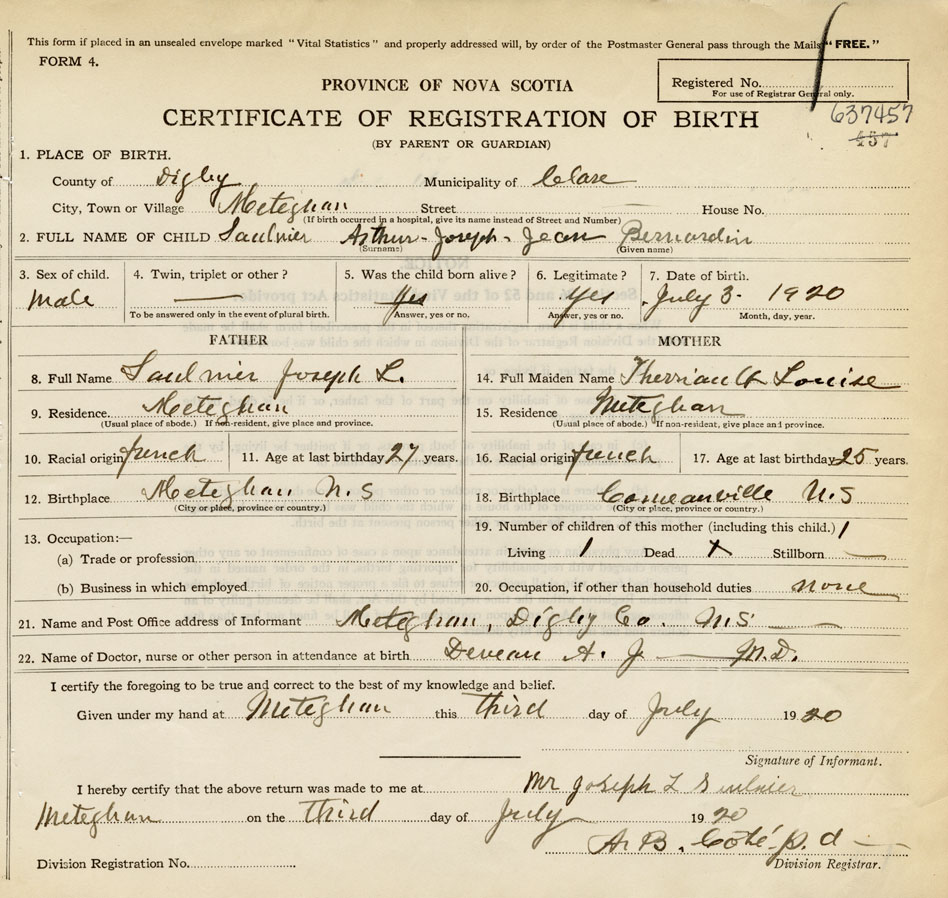 This form if placed in an unsealed envelope marked "Vital Statistics" and properly addressed will, by order of the Postmaster General pass through the Mails "FREE."
FORM 4.
PROVINCE OF NOVA SCOTIA
Registered No.
For use of Registrar General only.
CERTIFICATE OF REGISTRATION OF BIRTH
637457
457
(BY PARENT OR GUARDIAN)
1. PLACE OF BIRTH.
County of Digby Municipality of Clare
City, Town or Village Meteghan Street House No.
(If birth occurred in a hospital, give its name instead of Street and Number)
2. FULL NAME OF CHILD Saulnier Arthur-Joseph-Jean Bernardin
(Surname) (Given name)
3. Sex of child. 4. Twin, triplet or other? 5. Was the child born alive? 6. Legitimate? 7. Date of birth.
Male — Yes Yes July 3- 1920
To be answered only in the event of plural birth. Answer, yes or no. Answer, yes or no. Month, day, year.
FATHER MOTHER
8. Full Name Saulnier Joseph L. 14. Full Maiden Name Therriault Louise
9. Residence. Meteghan 15. Residence Meteghan
(Usual place of abode.) If non-resident, give place and province. (Usual place of abode.) If non-resident, give place and province.
10. Racial origin french 11. Age at last birthday 27 years. 16. Racial origin french 17. Age at last birthday 25 years.
12. Birthplace Meteghan N.S 18. Birthplace Comeauville N.S
(City or place, province or country.) (City or place, province or country.)
13. Occupation:— 19. Number of children of this mother (including this child.) 1
(a) Trade or profession Living 1 Dead X Stillborn —
(b) Business in which employed 20. Occupation, if other than household duties none
21. Name and Post Office address of Informant Meteghan, Digby Co. N.S
22. Name of Doctor, nurse or other person in attendance at birth Deveau A. J — M.D.
I certify the foregoing to be true and correct to the best of my knowledge and belief.
Given under my hand at Meteghan this third day of July 1920
Signature of Informant.
I hereby certify that the above return was made to me at Mr Joseph L Saulnier
Meteghan on the third day of July 1920
A. B. Côté p.d
Division Registration No. Division Registrar.